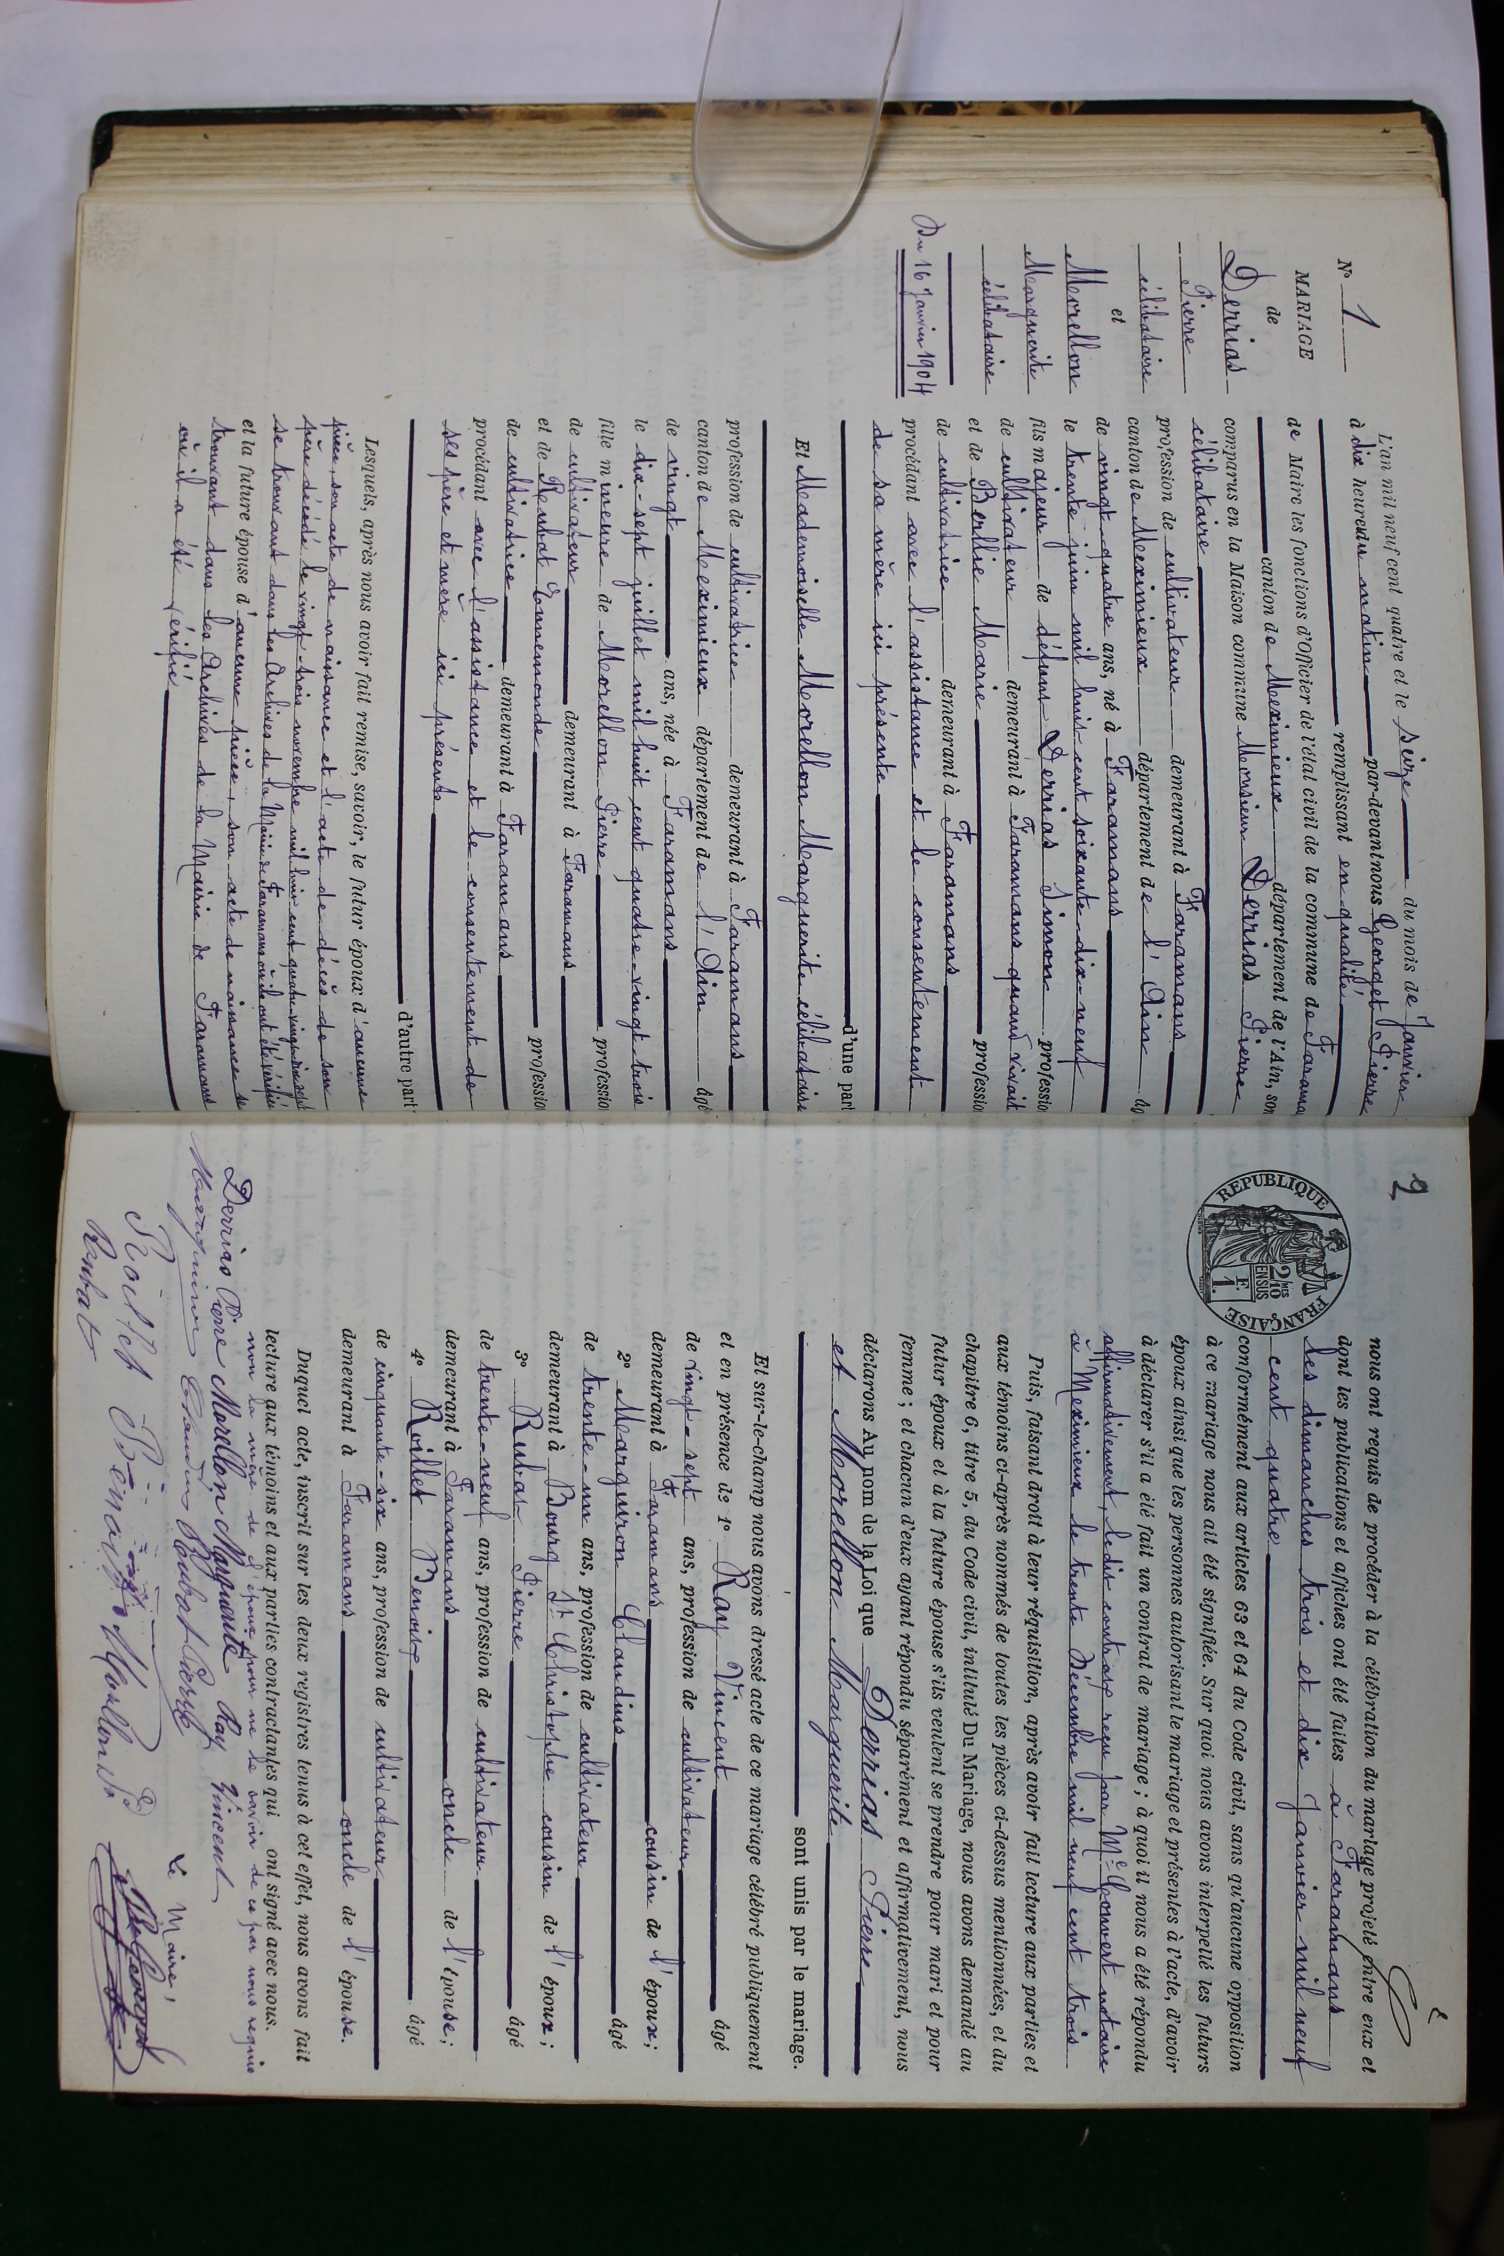 N° 1
MARIAGE
de
Derrias
Pierre
célibataire
et
Morellon
Marguerite
célibataire
Du 16 Janvier 1904
L'an mil neuf cent quatre et le seize du mois de Janvier
à dix heures du matin par-devant nous Georget Pierre
remplissant en qualité
de Maire les fonctions d'Officier de l'état civil de la commune de Faramans
canton de Meximieux département de l'Ain, son
comparus en la Maison commune Monsieur Derrias Pierre
célibataire
profession de cultivateur demeurant à Faramans
canton de Meximieux département de l'Ain âg
de vingt-quatre ans, né à Faramans
le trente juin mil huit-cent soixante-dix-neuf
fils majeur de défunt Derrias Simon professio
de cultivateur demeurant à Faramans quand vivait
et de Berlie Marie profession
de cultivatrice demeurant à Faramans
procédant avec l'assistance et le consentement
de sa mère ici présente
d'une part
Et Mademoiselle Morellon Marguerite célibataire
profession de cultivatrice demeurant à Faramans
canton de Meximieux département de l'Ain âgé
de vingt ans, née à Faramans
le dix-sept juillet mil huit cent quatre-vingt-trois
fille mineure de Morellon Pierre professio
de cultivateur demeurant à Faramans
et de Rubat Ennemonde professio
de cultivatrice demeurant à Faramans
procédant avec l'assistance et le consentement de
ses père et mère ici présents
d'autre part
Lesquels, après nous avoir fait remise, savoir, le futur époux d'aucune
pièce, son acte de naissance et l'acte de décès de son
père décédé le vingt-trois novembre mil huit cent quatre-vingt-dix-sept
se trouvant dans les Archives de la Mairie de Faramans où ils ont été vérifiés
et la future épouse d'aucune pièce, son acte de naissance se
trouvant dans les Archives de la Mairie de Faramans
où il a été vérifié
2
REPUBLIQUE FRANÇAISE
2/10 EN SUS
1 F.
nous ont requis de procéder à la célébration du mariage projeté entre eux et
dont les publications et affiches ont été faites à Faramans
les dimanches trois et dix Janvier mil neuf
cent quatre
conformément aux articles 63 et 64 du Code civil, sans qu'aucune opposition
à ce mariage nous ait été signifiée. Sur quoi nous avons interpellé les futurs
époux ainsi que les personnes autorisant le mariage et présentes à l'acte, d'avoir
à déclarer s'il a été fait un contrat de mariage ; à quoi il nous a été répondu
affirmativement, ledit contrat reçu par Me Convert notaire
à Meximieux le trente Décembre mil neuf cent trois
Puis, faisant droit à leur réquisition, après avoir fait lecture aux parties et
aux témoins ci-après nommés de toutes les pièces ci-dessus mentionnées, et du
chapitre 6, titre 5, du Code civil, intitulé Du Mariage, nous avons demandé au
futur époux et à la future épouse s'ils veulent se prendre pour mari et pour
femme ; et chacun d'eux ayant répondu séparément et affirmativement, nous
déclarons Au nom de la Loi que Derrias Pierre
et Morellon Marguerite
sont unis par le mariage.
Et sur-le-champ nous avons dressé acte de ce mariage célébré publiquement
et en présence de 1° Ray Vincent âgé
de vingt-sept ans, profession de cultivateur
demeurant à Faramans cousin de l'époux ;
2° Marguiron Claudius âgé
de trente-un ans, profession de cultivateur
demeurant à Bourg St Christophe cousin de l'époux ;
3° Rubat Pierre âgé
de trente-neuf ans, profession de cultivateur
demeurant à Faramans oncle de l'épouse ;
4° Roillet Benoit âgé
de cinquante-six ans, profession de cultivateur
demeurant à Faramans oncle de l'épouse.
Duquel acte, inscrit sur les deux registres tenus à cet effet, nous avons fait
lecture aux témoins et aux parties contractantes qui ont signé avec nous.
non la mère de l'époux pour ne le savoir de ce par nous requise
Derrias Pierre Morellon Marguerite Ray Vincent
Marguiron Claudius Rubat Pierre
Roillet Benoit Morellon Pre
Rubat
Le Maire,